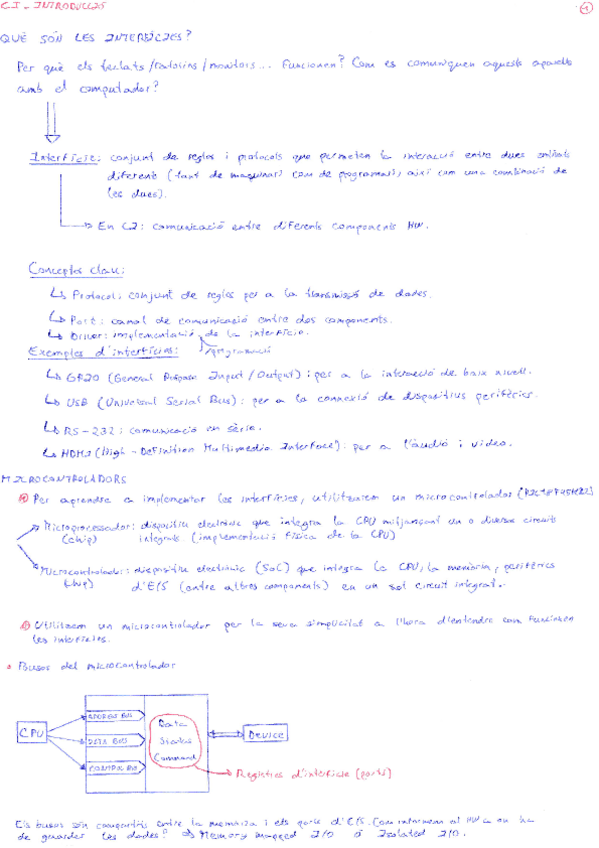 C.I - INTRODUCCIÓ
1
QUÈ SÓN LES INTERFÍCIES?
Per què els teclats/ratolins/monitors... funcionen? Com es comuniquen aquests aparells
amb el computador?
Interfície: conjunt de regles i protocols que permeten la interacció entre dues entitats
diferents (tant de maquinari com de programari, així com una combinació de
les dues).
En CI: comunicació entre diferents components HW.
Conceptes clau:
Protocol: conjunt de regles per a la transmissió de dades.
Port: canal de comunicació entre dos components.
Driver: implementació de la interfície.
programació
Exemples d'interfícies:
GPIO (General Purpose Input/Output): per a la interacció de baix nivell.
USB (Universal Serial Bus): per a la connexió de dispositius perifèrics.
RS-232: comunicació en sèrie.
HDMI (High-Definition Multimedia Interface): per a l'àudio i vídeo.
MICROCONTROLADORS
Per aprendre a implementar les interfícies, utilitzarem un microcontrolador (PIC18F45K22)
Microprocessador: dispositiu electrònic que integra la CPU mitjançant un o diversos circuits
(chip) integrats. (implementació física de la CPU)
Microcontrolador: dispositiu electrònic (SoC) que integra la CPU, la memòria, perifèrics
(chip) d'E/S (entre altres components) en un sol circuit integrat.
Utilitzem un microcontrolador per la seva simplicitat a l'hora d'entendre com funcionen
les interfícies.
Busos del microcontrolador
CPU
ADDRESS BUS
DATA BUS
CONTROL BUS
Data
Status
Command
Device
Registres d'interfície (ports)
Els busos són compartits entre la memòria i els ports d'E/S. Com informem al HW a on ha
de guardar les dades? ⇒ Memory mapped I/O ó Isolated I/O.